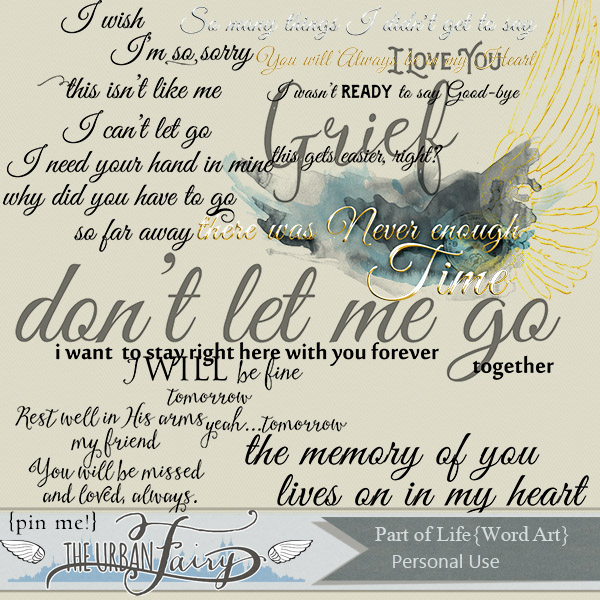 I wish
So many things I didn't get to say
I'm so sorry
You will Always be in my Heart
I LOVE YOU
this isn't like me
I wasn't READY to say Good-bye
I can't let go
Grief
I need your hand in mine
this gets easier, right?
why did you have to go
so far away
there was Never enough
Time
don't let me go
i want to stay right here with you forever
together
I WILL be fine
tomorrow
Rest well in His arms
my friend
yeah...tomorrow
You will be missed
and loved, always.
the memory of you
lives on in my heart
{pin me!}
THE URBAN Fairy
Part of Life {Word Art}
Personal Use